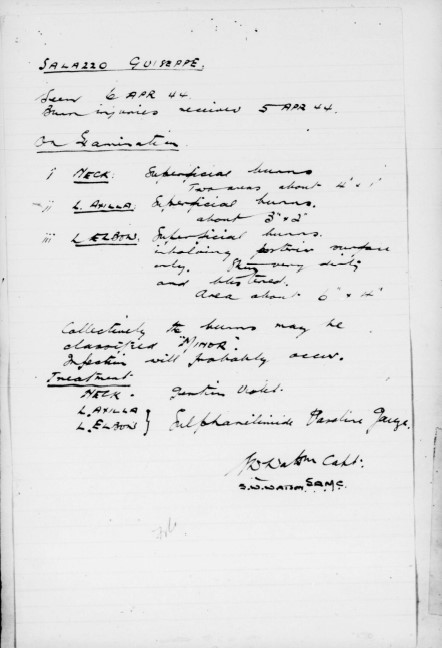 SALAZZO GUISEPPE.
Seen 6 APR 44.
Burn injuries received 5 APR 44.
On Examination.
i NECK: Superficial burns
Two areas about 4" x 1"
ii L. AXILLA: Superficial burns.
about 3" x 2"
iii L ELBOW: Superficial burns.
involving posterior surface
only. Skin very dirty
and blistered.
Area about 6" x 4"
Collectively the burns may be
classified "MINOR".
Infection will probably occur.
Treatment
NECK. Gentin Violet.
L. AXILLA
L. ELBOW } Sulphanilimide Paraline Gauze.
Watson Capt.
S.W. WATSON S.A.M.C.